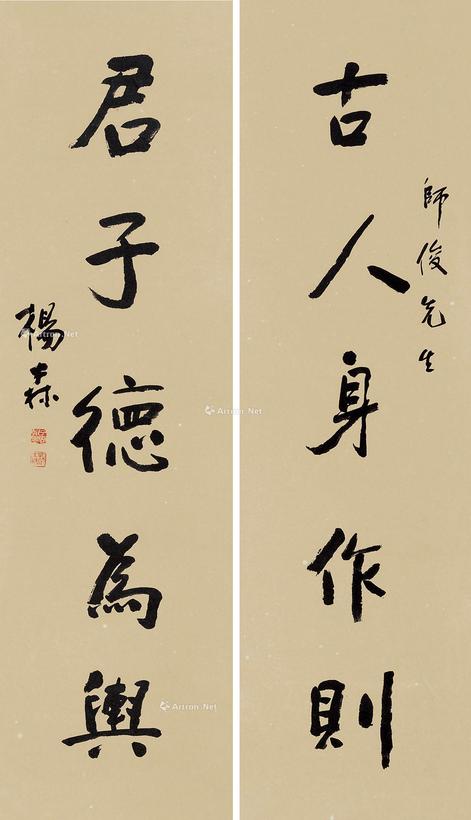 師俊先生
古人身作則
君子德為輿
楊森
Artron.Net
Artron.Net
Artron.Net
Artron.Net